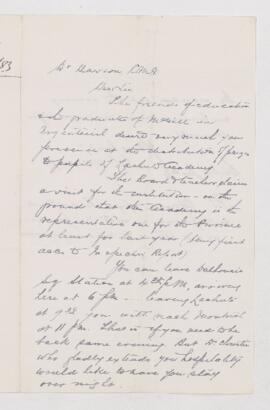 Dr Dawson C.M.G.
Dear Sir
The friends of education
and graduates of McGill in
Argenteuil desire very much your
presence at the distribution of prizes
to pupils of Lachute Academy.
The Board & teachers desire
a visit for the institution - on the
ground that the Academy is the
representative one for the Province
at least for last year
according to Inspectors Report)
You can leave Dalhousie
Sq Station at P.M. arriving
here at 6 pm - leaving Lachute
at 9 you will reach Montreal
at 11 pm. That is if you need to be
back same evening. But Dr Christie
who gladly extends you hospitality
would like to have you stay
over night.